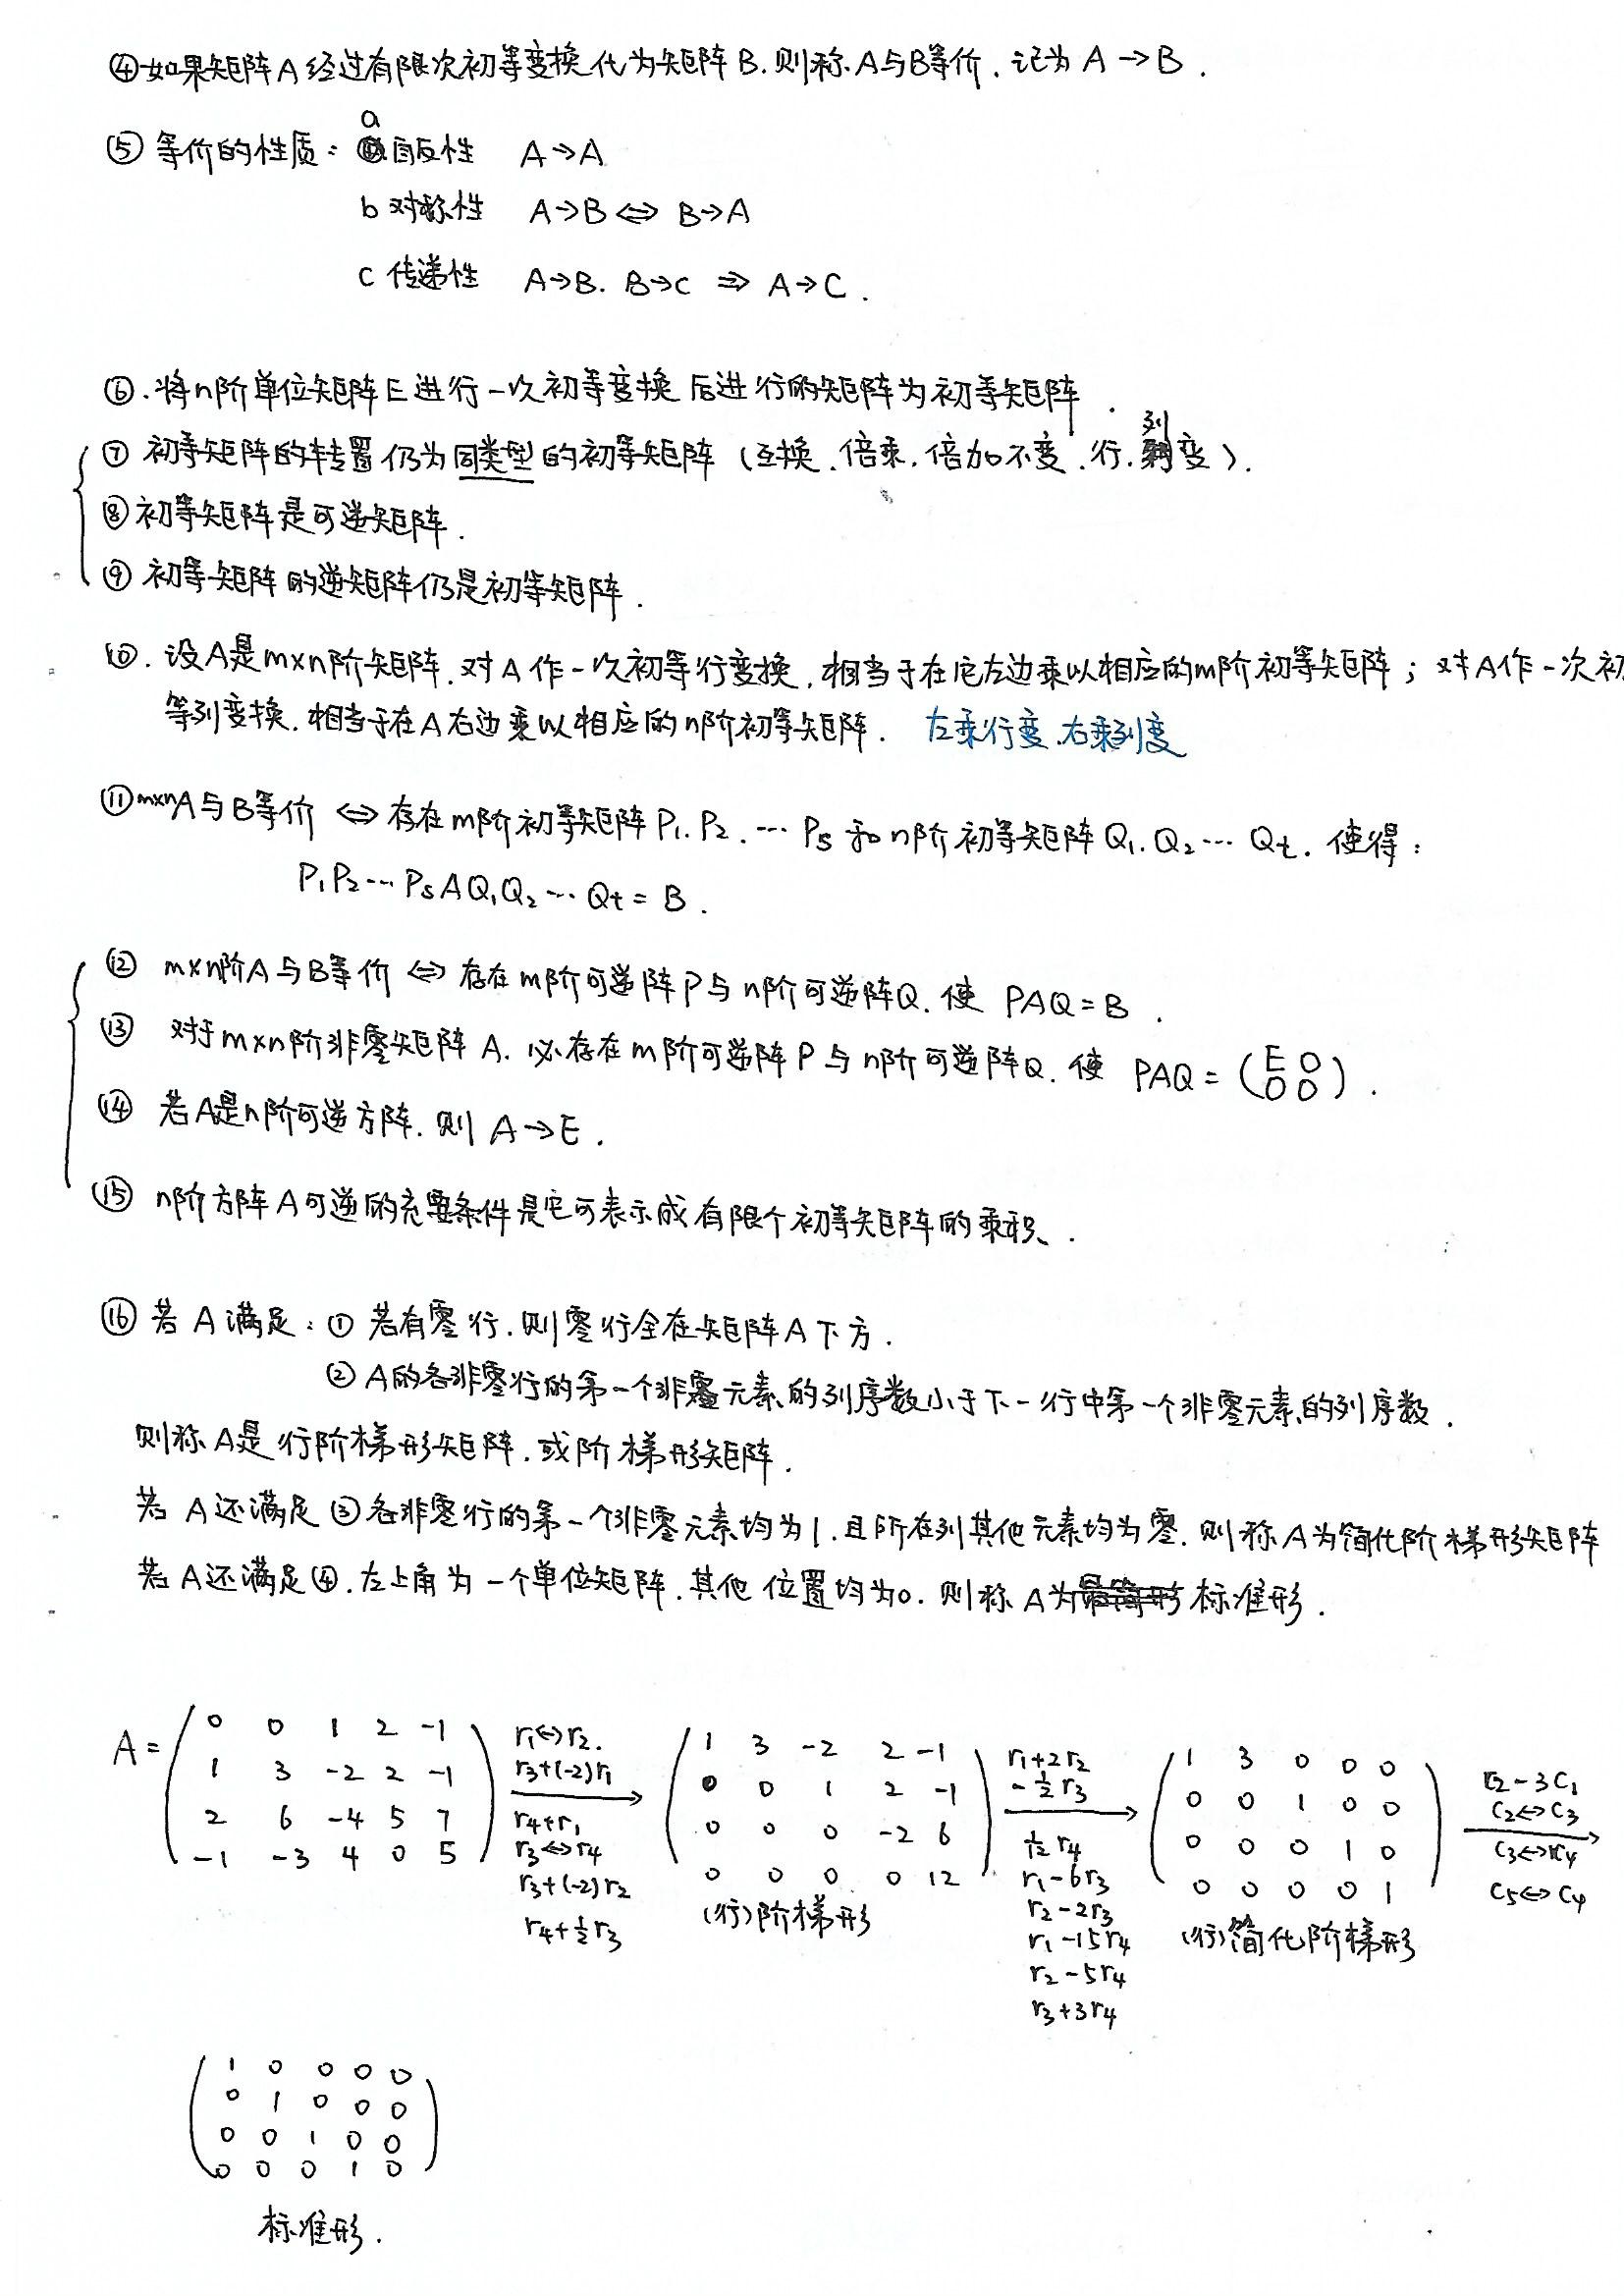 ④如果矩阵A经过有限次初等变换化为矩阵B.则称A与B等价.记为 A→B.
⑤ 等价的性质: a 自反性 A→A
b 对称性 A→B ⇔ B→A
c 传递性 A→B. B→C ⇒ A→C.
⑥.将n阶单位矩阵E进行一次初等变换后进行的矩阵为初等矩阵.
⑦ 初等矩阵的转置仍为同类型的初等矩阵 (互换.倍乘.倍加不变.行.列变).
⑧初等矩阵是可逆矩阵.
⑨ 初等矩阵的逆矩阵仍是初等矩阵.
⑩. 设A是m×n阶矩阵.对A作一次初等行变换.相当于在它左边乘以相应的m阶初等矩阵; 对A作一次初
等列变换.相当于在A右边乘以相应的n阶初等矩阵. 左乘行变.右乘列变
⑪m×nA与B等价 ⇔ 存在m阶初等矩阵P₁.P₂.…Ps和n阶初等矩阵Q₁.Q₂…Qt. 使得:
P₁P₂…PsAQ₁Q₂…Qt = B.
⑫ m×n阶A与B等价 ⇔ 存在m阶可逆阵P与n阶可逆阵Q.使 PAQ=B.
⑬ 对于m×n阶非零矩阵A.必存在m阶可逆阵P与n阶可逆阵Q.使 PAQ = (E 0
0 0).
⑭ 若A是n阶可逆方阵.则 A→E.
⑮ n阶方阵A可逆的充要条件是它可表示成有限个初等矩阵的乘积.
⑯ 若A满足: ① 若有零行.则零行全在矩阵A下方.
② A的各非零行的第一个非零元素的列序数小于下一行中第一个非零元素的列序数.
则称A是行阶梯形矩阵.或阶梯形矩阵.
若A还满足③各非零行的第一个非零元素均为1.且所在列其他元素均为零.则称A为简化阶梯形矩阵
若A还满足④.左上角为一个单位矩阵.其他位置均为0.则称A为最简形标准形.
A=
0 0 1 2 -1
1 3 -2 2 -1
2 6 -4 5 7
-1 -3 4 0 5
r₁↔r₂.
r₃+(-2)r₁
r₄+r₁
r₃↔r₄
r₃+(-2)r₂
r₄+½r₃
1 3 -2 2 -1
0 0 1 2 -1
0 0 0 -2 6
0 0 0 0 12
(行)阶梯形
r₁+2r₂
-½r₃
1/12 r₄
r₁-6r₃
r₂-2r₃
r₁-15r₄
r₂-5r₄
r₃+3r₄
1 3 0 0 0
0 0 1 0 0
0 0 0 1 0
0 0 0 0 1
(行)简化阶梯形
c₂-3c₁
c₂↔c₃
c₃↔c₄
c₅↔c₄
1 0 0 0 0
0 1 0 0 0
0 0 1 0 0
0 0 0 1 0
标准形.